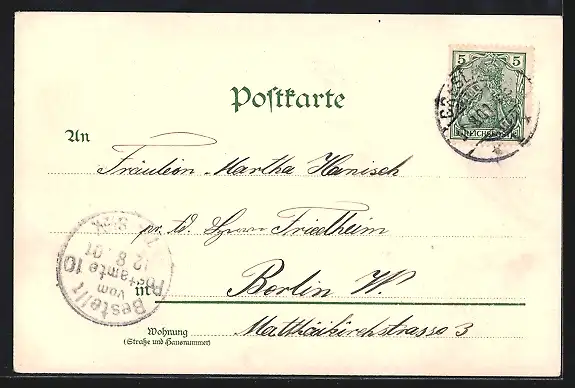 5 5
REICHSPOST
Postkarte
An
Fräulein Martha Hanisch
pr. Ad. Herrn Friedheim
in Berlin W.
Wohnung Matthäikirchstrasse 3
(Straße und Hausnummer)
Bestellt
vom
Postamte 10
12.8.01